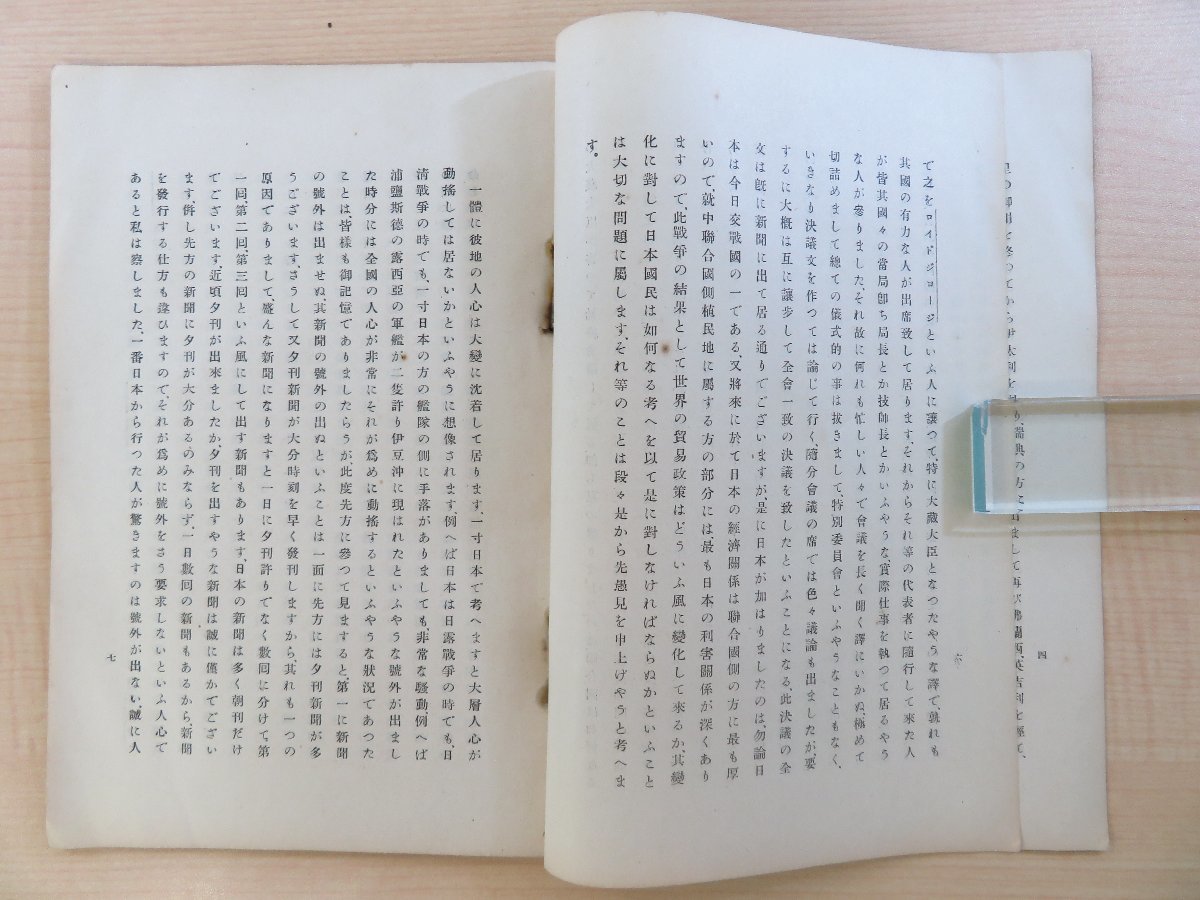 四
六
で之をロイドジョージといふ人に讓つて、特に大藏大臣となつたやうな譯で、孰れも
其國の有力な人が出席致して居ります、それからそれ等の代表者に隨行して來た人
が皆其國々の當局卽ち局長とか技師長とかいふやうな、實際仕事を執つて居るやう
な人が參りました、それ故に何れも忙しい人々で會議を長く開く譯にいかぬ極めて
切詰めまして總ての儀式的の事は拔きまして、特別委員會といふやうなこともなく、
いきなり決議文を作つては論じて行く、隨分會議の席では色々議論も出ましたが、要
するに大槪は互に讓步して全會一致の決議を致したといふことになる、此決議の全
文は旣に新聞に出て居る通りでございますが、是に日本が加はりましたのは、勿論日
本は今日交戰國の一である、又將來に於て日本の經濟關係は聯合國側の方に最も厚
いので、就中聯合國側植民地に屬する方の部分には最も日本の利害關係が深くあり
ますので、此戰爭の結果として世界の貿易政策はどういふ風に變化して來るか、其變
化に對して日本國民は如何なる考へを以て是に對しなければならぬかといふこと
は大切な問題に屬します、それ等のことは段々是から先愚見を申上げやうと考へま
す。
一體に彼地の人心は大變に沈着して居ります、一寸日本で考へますと大層人心が
動搖しては居ないかといふやうに想像されます、例へば日本は日露戰爭の時でも、日
淸戰爭の時でも、一寸日本の方の艦隊の側に手落がありましても、非常な騷動、例へば
浦鹽斯德の露西亞の軍艦が二隻許り伊豆沖に現はれたといふやうな號外が出まし
た時分には全國の人心が非常にそれが爲めに動搖するといふやうな狀況であつた
ことは、皆樣も御記憶でありましたらうが、此度先方に參つて見ますると、第一に新聞
の號外は出ませぬ、其新聞の號外の出ぬといふことは一面に先方には夕刊新聞が多
うございます、さうして又夕刊新聞が大分時刻を早く發刊しますから、其れも一つの
原因でありまして、盛んな新聞になりますと一日に夕刊許りでなく數回に分けて、第
一回、第二回、第三回といふ風にして出す新聞もあります、日本の新聞は多く朝刊だけ
でございます、近頃夕刊が出來ましたか、夕刊を出すやうな新聞は誠に僅かでござい
ます、倂し先方の新聞に夕刊が大分あるのみならず、一日數回の新聞もあるから、新聞
を發行する仕方も違ひますので、それが爲めに號外をさう要求しないといふ人心で
あると私は察しました、一番日本から行つた人が驚きますのは號外が出ない、誠に人
七